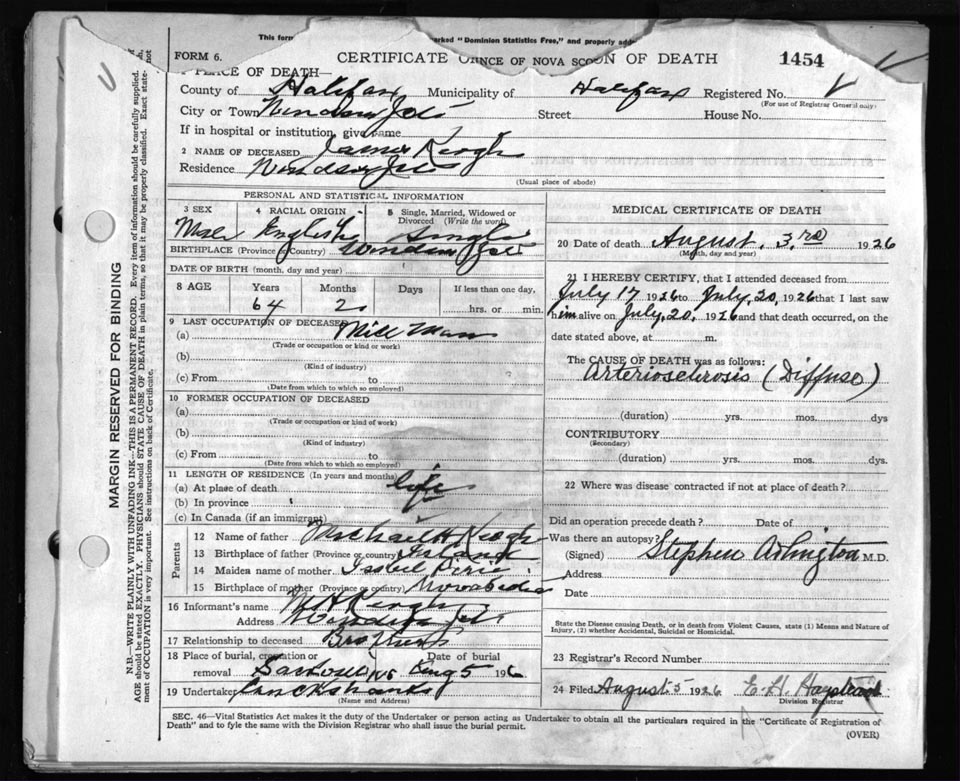 This form
marked "Dominion Statistics Free," and properly
FORM 6.
CERTIFICATE
NCE OF NOVA SCO
N OF DEATH
1454
PLACE OF DEATH—
County of Halifax Municipality of Halifax Registered No.
(For use of Registrar General only)
City or Town Windsor Jct Street House No.
If in hospital or institution, give name
2 NAME OF DECEASED James Keogh
Residence Windsor Jct
(Usual place of abode)
PERSONAL AND STATISTICAL INFORMATION
3 SEX
Male
4 RACIAL ORIGIN
English
5 Single, Married, Widowed or
Divorced (Write the word)
Single
BIRTHPLACE (Province or Country) Windsor Jct
DATE OF BIRTH (month, day and year)
8 AGE Years Months Days If less than one day,
64 2 hrs. or min.
9 LAST OCCUPATION OF DECEASED
(a) Mill Man
(Trade or occupation or kind or work)
(b)
(Kind of industry)
(c) From to
(Date from which to which so employed)
10 FORMER OCCUPATION OF DECEASED
(a)
(Trade or occupation or kind of work)
(b)
(Kind of industry)
(c) From to
(Date from which to which so employed)
11 LENGTH OF RESIDENCE (In years and months)
(a) At place of death life
(b) In province
(c) In Canada (if an immigrant)
Parents
12 Name of father Michael H Keogh
13 Birthplace of father (Province or country)
14 Maiden name of mother Isabel
15 Birthplace of mother (Province or country) Nova Scotia
16 Informant's name Keogh
Address Windsor Jct
17 Relationship to deceased Brother
18 Place of burial, cremation or Date of burial
removal NS Aug 5 1926
19 Undertaker Cruickshanks
(Name and Address)
MEDICAL CERTIFICATE OF DEATH
20 Date of death August 3rd 1926
(Month, day and year)
21 I HEREBY CERTIFY, that I attended deceased from
July 17 1926 to July 20, 1926 that I last saw
him alive on July 20, 1926 and that death occurred, on the
date stated above, at m.
The CAUSE OF DEATH was as follows:
Arteriosclerosis (Diffuse)
(duration) yrs. mos. dys
CONTRIBUTORY
(Secondary)
(duration) yrs. mos. dys.
22 Where was disease contracted if not at place of death?
Did an operation precede death? Date of
Was there an autopsy?
(Signed) Stephen M.D.
Address
Date
State the Disease causing Death, or in death from Violent Causes, state (1) Means and Nature of
Injury, (2) whether Accidental, Suicidal or Homicidal.
23 Registrar's Record Number
24 Filed August 5 1926 E. H.
Division Registrar
SEC. 46—Vital Statistics Act makes it the duty of the Undertaker or person acting as Undertaker to obtain all the particulars required in the "Certificate of Registration of
Death" and to fyle the same with the Division Registrar who shall issue the burial permit.
(OVER)
MARGIN RESERVED FOR BINDING
N.B.—WRITE PLAINLY WITH UNFADING INK—THIS IS A PERMANENT RECORD. Every item of information should be carefully supplied.
AGE should be stated EXACTLY. PHYSICIANS should STATE CAUSE OF DEATH in plain terms, so that it may be properly classified. Exact state-
ment of OCCUPATION is very important. See instructions on back of Certificate.